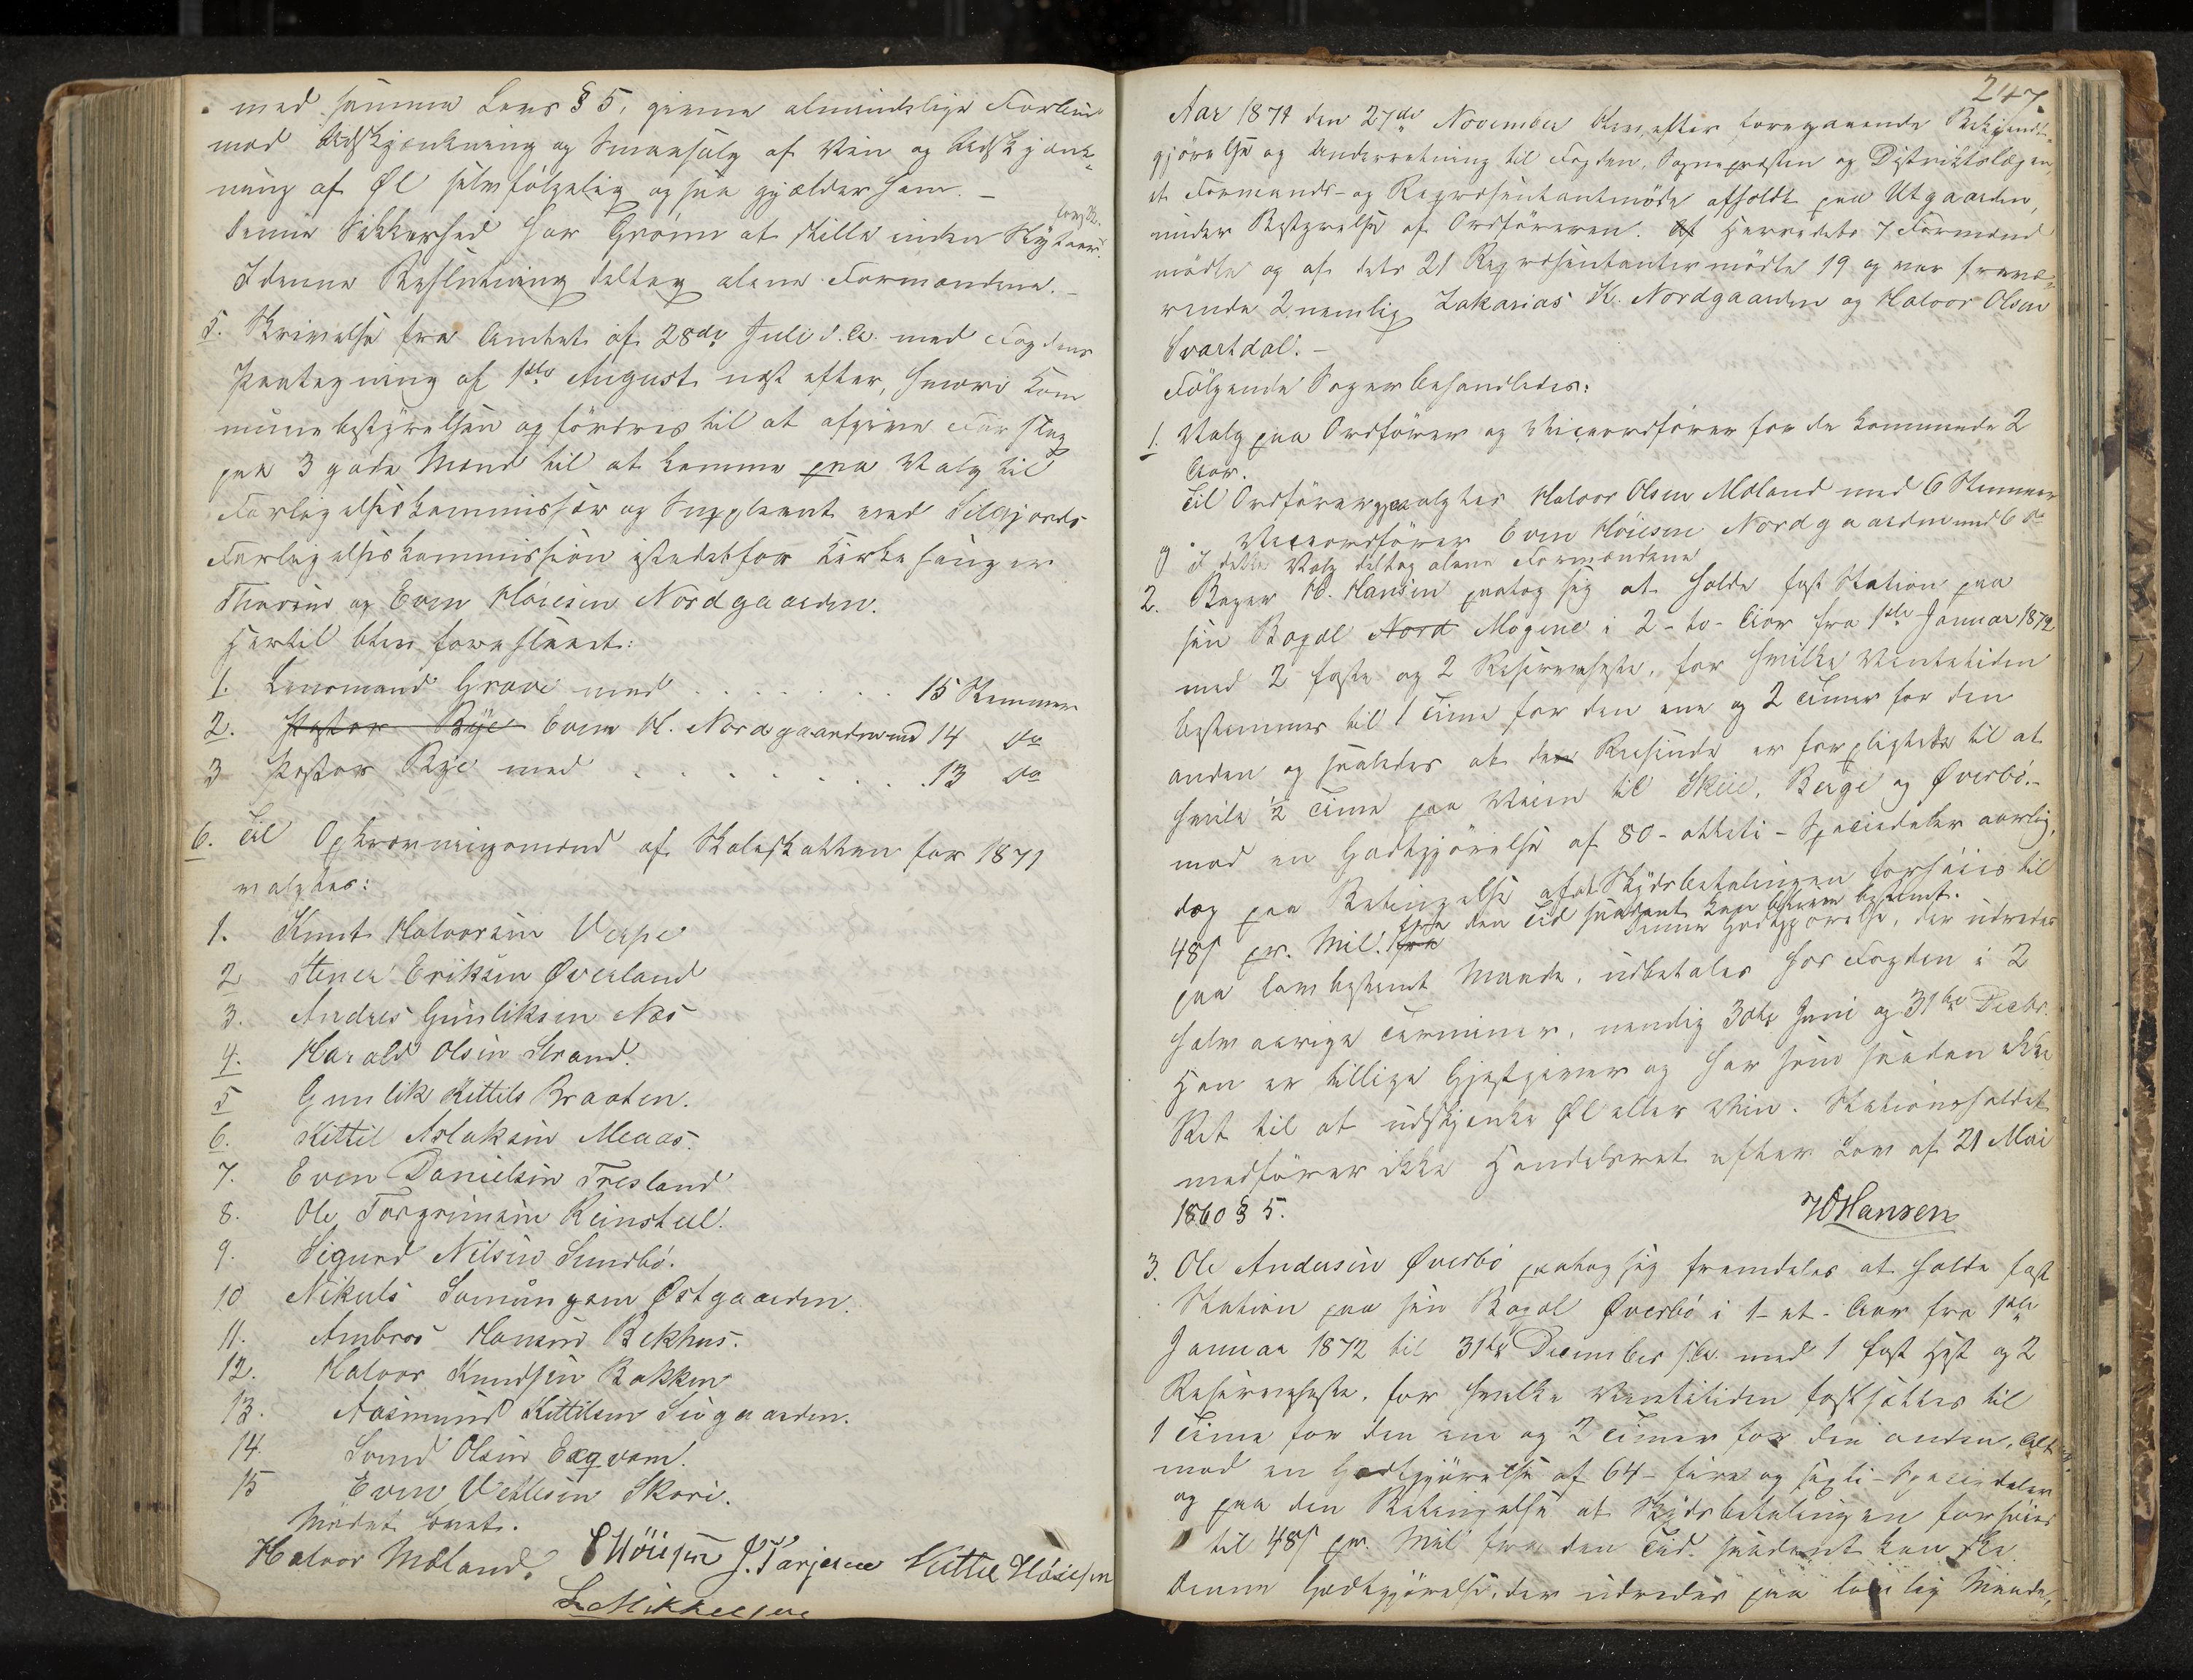 med samme Lovs § 5, givne almindelige Forbud
mod Udskjænkning og Smaasalg af Vin og Udskjænk-
ning af Øl selvfølgelig ogsaa gjælder ham. –
Denne Sikkerhed har Groven at stille inden
I denne Beslutning deltog alene Formændene. –
5. Skrivelse fra Amtet af 28de Juli d. A. med Fogdens
Paategning af 1ste August næst efter, hvori Kom
munebestyrelsen opfordres til at afgive Forslag
paa 3 gode Mænd til at komme paa Valg til
Forligelseskommissær og Suppleant ved Siljords
Forligelseskommission istedetfor Kirkesanger
og Even Høiesen Nordgaarden.
Hertil blev foreslaaet:
1. Lensmand Grave med . . . . . . . 15 Stemmer
2. Pastor Bye Even H. Nordgaarden med 14 do
3 Pastor Bye med . . . . . . . . 13 do
6. Til Opkrævningsmænd af Skoleskatten for 1871
valgtes:
1. Knut Halvorsen Verpe
2 Stener Eriksen Øverland
3. Andres Gunliksen Næs
4. Harald Olsen Strand.
5 Gunlik Kittils Braaten.
6. Kittil Aslaksen Meaas.
7. Even Danielsen Tresland
8. Ole Torgrimsen Reinstul.
9. Sigurd Nilsen Sundbö.
10 Nikuls Østgaarden.
11. Ambros Hansen Bekhus.
12. Halvor Knudsen Bakken
13. Aasmund Kittilsen Siogaarden.
14. Svend Olsen
15 Even Vetlesen Skori.
Mødet hævet.
Halvor Moland. EHöiesen J. Tarjesen Kittil Höiesen
L. Mikkelsen
247.
Aar 1871 den 27de November blev, efter foregaaende Bekjendt-
gjörelse og Underretning til Fogden, Sognepresten og Distriktslægen,
et Formands- og Repræsentantmöde afholdt paa Utgaarden,
under Bestyrelse af Ordföreren. Af Herredets 7 Formænd
mödte og af dets 21 Repræsentanter mödte 19 og var fravæ-
rende 2 nemlig Zakarias K. Nordgaarden og Halvor Olsen
Svartdal. –
Fölgende Sager behandledes:
1. Valg paa Ordförer og Viceordförer for de kommende 2
Aar.
Til Ordförer valgtes Halvor Olsen Moland med 6 Stemmer
og " Viceordförer Even Höiesen Nordgaarden med 6 do
I dette Valg deltog alene Formændene
2. Bager H. Hansen paatog sig at holde fast Station paa
sin Bopæl Nord Mogene i 2 - to - Aar fra 1ste Januar 1872
med 2 faste og 2 Reserveheste, for hvilke Ventetiden
bestemmes til 1 Time for den ene og 2 Timer for den
anden og saaledes at den Reisende er forpligtede til at
hvile ½ Time paa Veien til Skeie, Berge og Øverbö. –
mod en Godtgjörelse af 80 - otteti - Speciedaler aarlig,
dog paa Betingelse af at Skydsbetalingen forhöies til
48 s pr. Mil. fra fra den Tid saadant kan blive bestemt.
Denne Godtgjörelse, der udredes
paa lovbestemt Maade, udbetales hos Fogden i 2
halvaarige Terminer, nemlig 30te Juni og 31te Decbr.
Han er tillige Gjestgiver og har som saadan ikke
Ret til at udskjænke Øl eller Vin. Stationsholdet
medförer ikke Handelsret efter Lov af 21 Mai
1860 § 5. HHansen
3. Ole Andersen Øverbö paatog sig fremdeles at holde fast
Station paa sin Bopæl Øverbö i 1 - et - Aar fra 1ste
Januar 1872 til 31te December s. A. med 1 fast Hest og 2
Reserveheste, for hvilke Ventetiden fastsættes til
1 Time for den ene og 2 Timer for den anden, Alt
mod en Godtgjörelse af 64 - fire og sexti - Speciedaler
og paa den Betingelse at Skydsbetalingen forhöies
til 48 s pr. Mil fra den Tid saadant kan ske.
Denne Godtgjörelse, der udredes paa lovlig Maade,